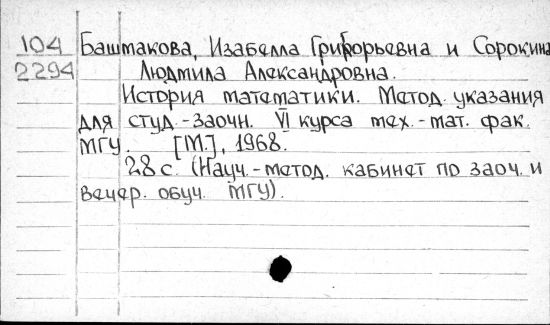 104 Баштакова, Изабелла Григорьевна и Сорокина
2294 Людмила Александровна.
История математики. Метод. указания
для студ.-заочн. VI курса мех.-мат. фак.
МГУ. [М.], 1968.
28 с. (Науч.-метод. кабинет по заоч. и
вечер. обуч. МГУ).